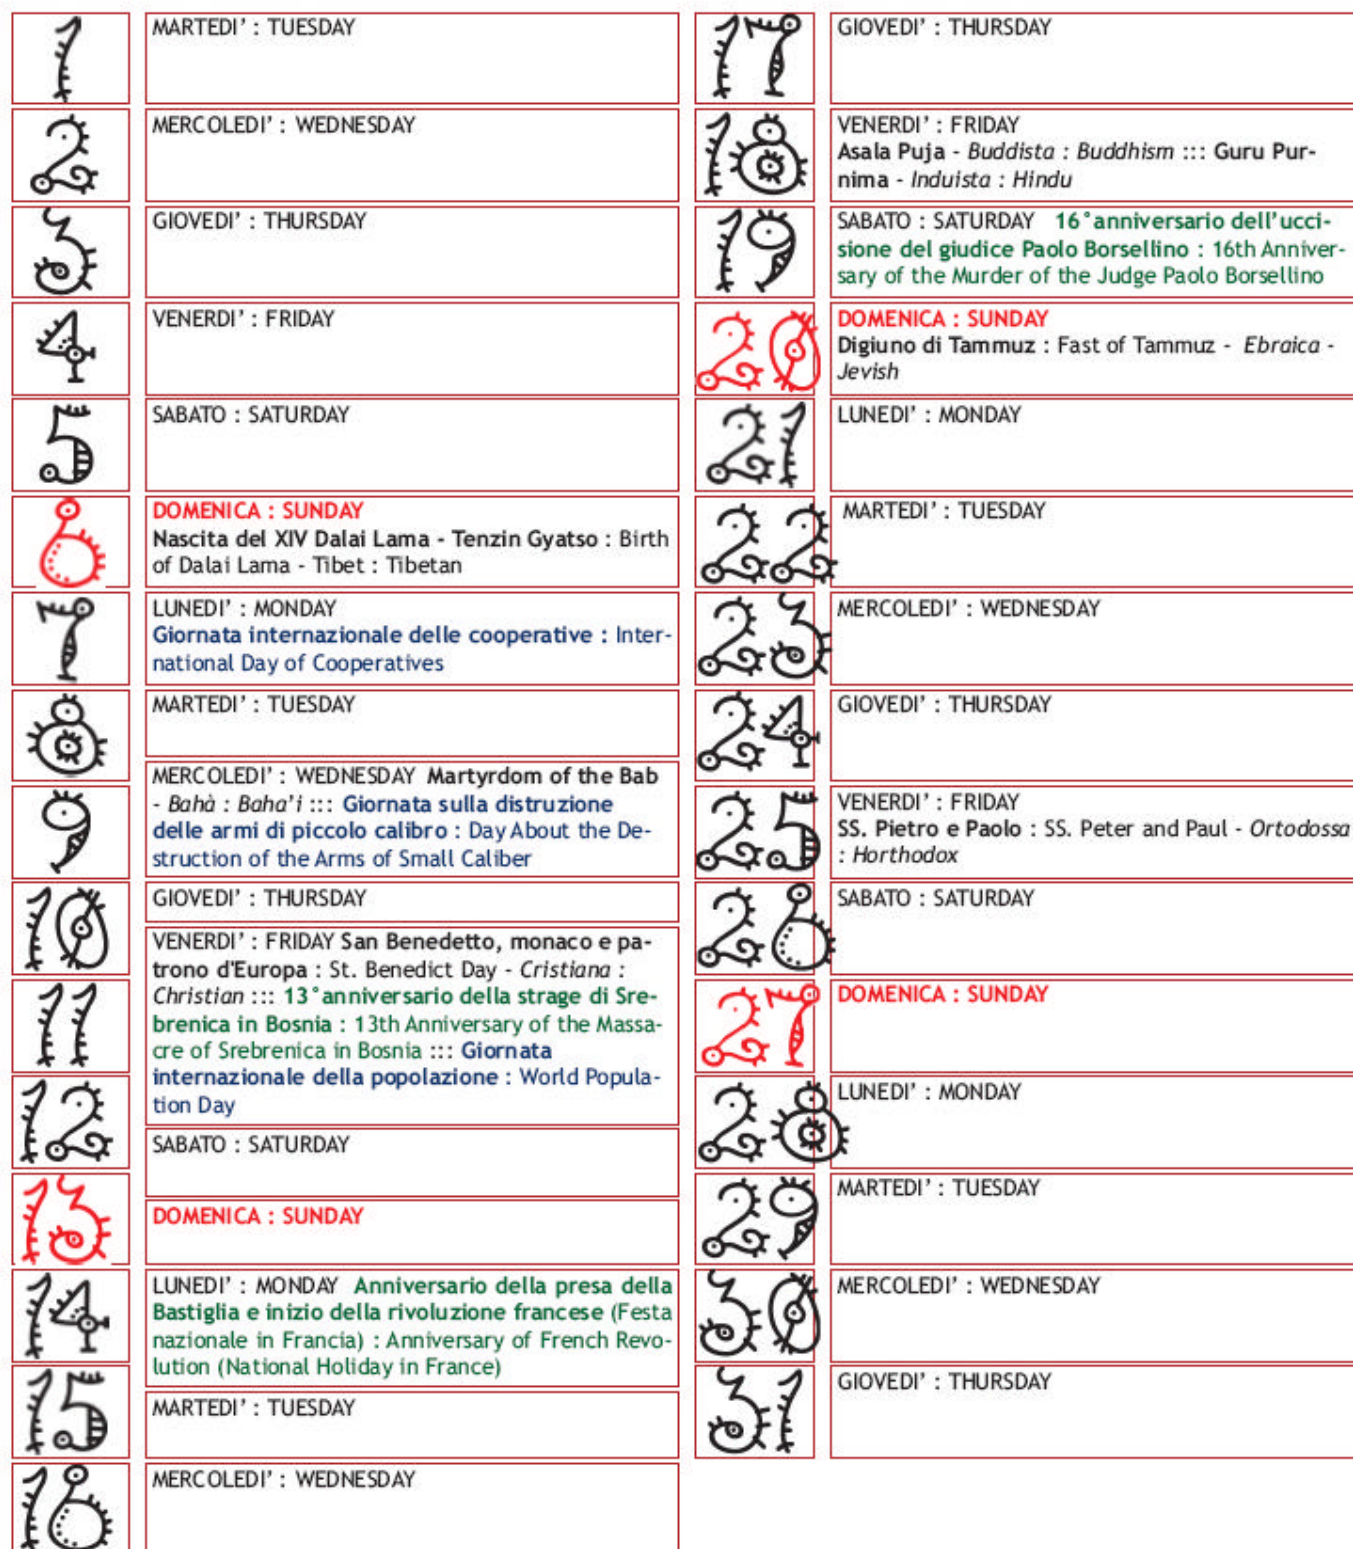 1
MARTEDI’ : TUESDAY
2
MERCOLEDI’ : WEDNESDAY
3
GIOVEDI’ : THURSDAY
4
VENERDI’ : FRIDAY
5
SABATO : SATURDAY
6
DOMENICA : SUNDAY
Nascita del XIV Dalai Lama - Tenzin Gyatso : Birth
of Dalai Lama - Tibet : Tibetan
7
LUNEDI’ : MONDAY
Giornata internazionale delle cooperative : Inter-
national Day of Cooperatives
8
MARTEDI’ : TUESDAY
9
MERCOLEDI’ : WEDNESDAY Martyrdom of the Bab
- Bahà : Baha’i ::: Giornata sulla distruzione
delle armi di piccolo calibro : Day About the De-
struction of the Arms of Small Caliber
10
GIOVEDI’ : THURSDAY
11
VENERDI’ : FRIDAY San Benedetto, monaco e pa-
trono d'Europa : St. Benedict Day - Cristiana :
Christian ::: 13°anniversario della strage di Sre-
brenica in Bosnia : 13th Anniversary of the Massa-
cre of Srebrenica in Bosnia ::: Giornata
internazionale della popolazione : World Popula-
tion Day
12
SABATO : SATURDAY
13
DOMENICA : SUNDAY
14
LUNEDI’ : MONDAY Anniversario della presa della
Bastiglia e inizio della rivoluzione francese (Festa
nazionale in Francia) : Anniversary of French Revo-
lution (National Holiday in France)
15
MARTEDI’ : TUESDAY
16
MERCOLEDI’ : WEDNESDAY
17
GIOVEDI’ : THURSDAY
18
VENERDI’ : FRIDAY
Asala Puja - Buddista : Buddhism ::: Guru Pur-
nima - Induista : Hindu
19
SABATO : SATURDAY 16°anniversario dell’ucci-
sione del giudice Paolo Borsellino : 16th Anniver-
sary of the Murder of the Judge Paolo Borsellino
20
DOMENICA : SUNDAY
Digiuno di Tammuz : Fast of Tammuz - Ebraica -
Jevish
21
LUNEDI’ : MONDAY
22
MARTEDI’ : TUESDAY
23
MERCOLEDI’ : WEDNESDAY
24
GIOVEDI’ : THURSDAY
25
VENERDI’ : FRIDAY
SS. Pietro e Paolo : SS. Peter and Paul - Ortodossa
: Horthodox
26
SABATO : SATURDAY
27
DOMENICA : SUNDAY
28
LUNEDI’ : MONDAY
29
MARTEDI’ : TUESDAY
30
MERCOLEDI’ : WEDNESDAY
31
GIOVEDI’ : THURSDAY